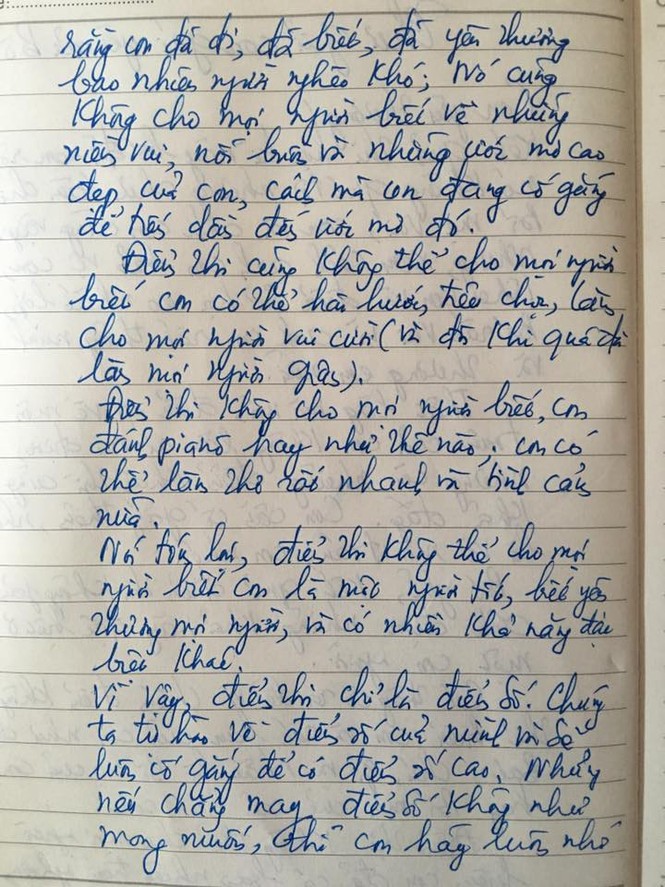 rằng con đã đi, đã biết, đã yêu thương
bao nhiêu người nghèo khó; Nó cũng
không cho mọi người biết về những
niềm vui, nỗi buồn và những ước mơ cao
đẹp của con, cách mà con đang cố gắng
để tiến dần đến ước mơ đó.
Điểm thi cũng không thể cho mọi người
biết con có thể hài hước, tiếu chọc, làm
cho mọi người vui cười (và đôi khi quá đà
làm mọi người giận).
Điểm thi không cho mọi người biết, con
đánh pianô hay như thế nào; con có
thể làm thơ rất nhanh và tình cảm
nữa.
Nói tóm lại, điểm thi không thể cho mọi
người biết con là một người tốt, biết yêu
thương mọi người, và có nhiều khả năng đặc
biệt khác.
Vì vậy, điểm thi chỉ là điểm số. Chúng
ta tự hào về điểm số của mình và sẽ
luôn cố gắng để có điểm số cao. Nhưng
nếu chẳng may điểm số không như
mong muốn, thì con hãy luôn nhớ